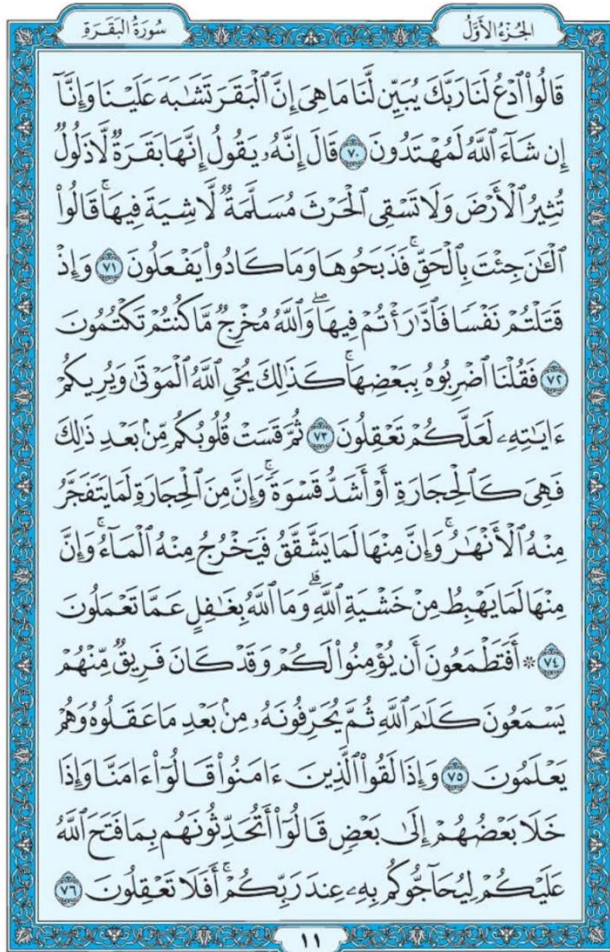 الجُزْءُ الأَوَّلُ
سُورَةُ البَقَرَةِ
قَالُواْ ٱدۡعُ لَنَا رَبَّكَ يُبَيِّن لَّنَا مَا هِيَ إِنَّ ٱلۡبَقَرَ تَشَٰبَهَ عَلَيۡنَا وَإِنَّآ
إِن شَآءَ ٱللَّهُ لَمُهۡتَدُونَ ٧٠ قَالَ إِنَّهُۥ يَقُولُ إِنَّهَا بَقَرَةٞ لَّا ذَلُولٞ
تُثِيرُ ٱلۡأَرۡضَ وَلَا تَسۡقِي ٱلۡحَرۡثَ مُسَلَّمَةٞ لَّا شِيَةَ فِيهَاۚ قَالُواْ
ٱلۡـَٰٔنَ جِئۡتَ بِٱلۡحَقِّۚ فَذَبَحُوهَا وَمَا كَادُواْ يَفۡعَلُونَ ٧١ وَإِذۡ
قَتَلۡتُمۡ نَفۡسٗا فَٱدَّٰرَٰٔتُمۡ فِيهَاۖ وَٱللَّهُ مُخۡرِجٞ مَّا كُنتُمۡ تَكۡتُمُونَ
٧٢ فَقُلۡنَا ٱضۡرِبُوهُ بِبَعۡضِهَاۚ كَذَٰلِكَ يُحۡيِ ٱللَّهُ ٱلۡمَوۡتَىٰ وَيُرِيكُمۡ
ءَايَٰتِهِۦ لَعَلَّكُمۡ تَعۡقِلُونَ ٧٣ ثُمَّ قَسَتۡ قُلُوبُكُم مِّنۢ بَعۡدِ ذَٰلِكَ
فَهِيَ كَٱلۡحِجَارَةِ أَوۡ أَشَدُّ قَسۡوَةٗۚ وَإِنَّ مِنَ ٱلۡحِجَارَةِ لَمَا يَتَفَجَّرُ
مِنۡهُ ٱلۡأَنۡهَٰرُۚ وَإِنَّ مِنۡهَا لَمَا يَشَّقَّقُ فَيَخۡرُجُ مِنۡهُ ٱلۡمَآءُۚ وَإِنَّ
مِنۡهَا لَمَا يَهۡبِطُ مِنۡ خَشۡيَةِ ٱللَّهِۗ وَمَا ٱللَّهُ بِغَٰفِلٍ عَمَّا تَعۡمَلُونَ
٧٤ ۞ أَفَتَطۡمَعُونَ أَن يُؤۡمِنُواْ لَكُمۡ وَقَدۡ كَانَ فَرِيقٞ مِّنۡهُمۡ
يَسۡمَعُونَ كَلَٰمَ ٱللَّهِ ثُمَّ يُحَرِّفُونَهُۥ مِنۢ بَعۡدِ مَا عَقَلُوهُ وَهُمۡ
يَعۡلَمُونَ ٧٥ وَإِذَا لَقُواْ ٱلَّذِينَ ءَامَنُواْ قَالُوٓاْ ءَامَنَّا وَإِذَا
خَلَا بَعۡضُهُمۡ إِلَىٰ بَعۡضٖ قَالُوٓاْ أَتُحَدِّثُونَهُم بِمَا فَتَحَ ٱللَّهُ
عَلَيۡكُمۡ لِيُحَآجُّوكُم بِهِۦ عِندَ رَبِّكُمۡۚ أَفَلَا تَعۡقِلُونَ ٧٦
١١